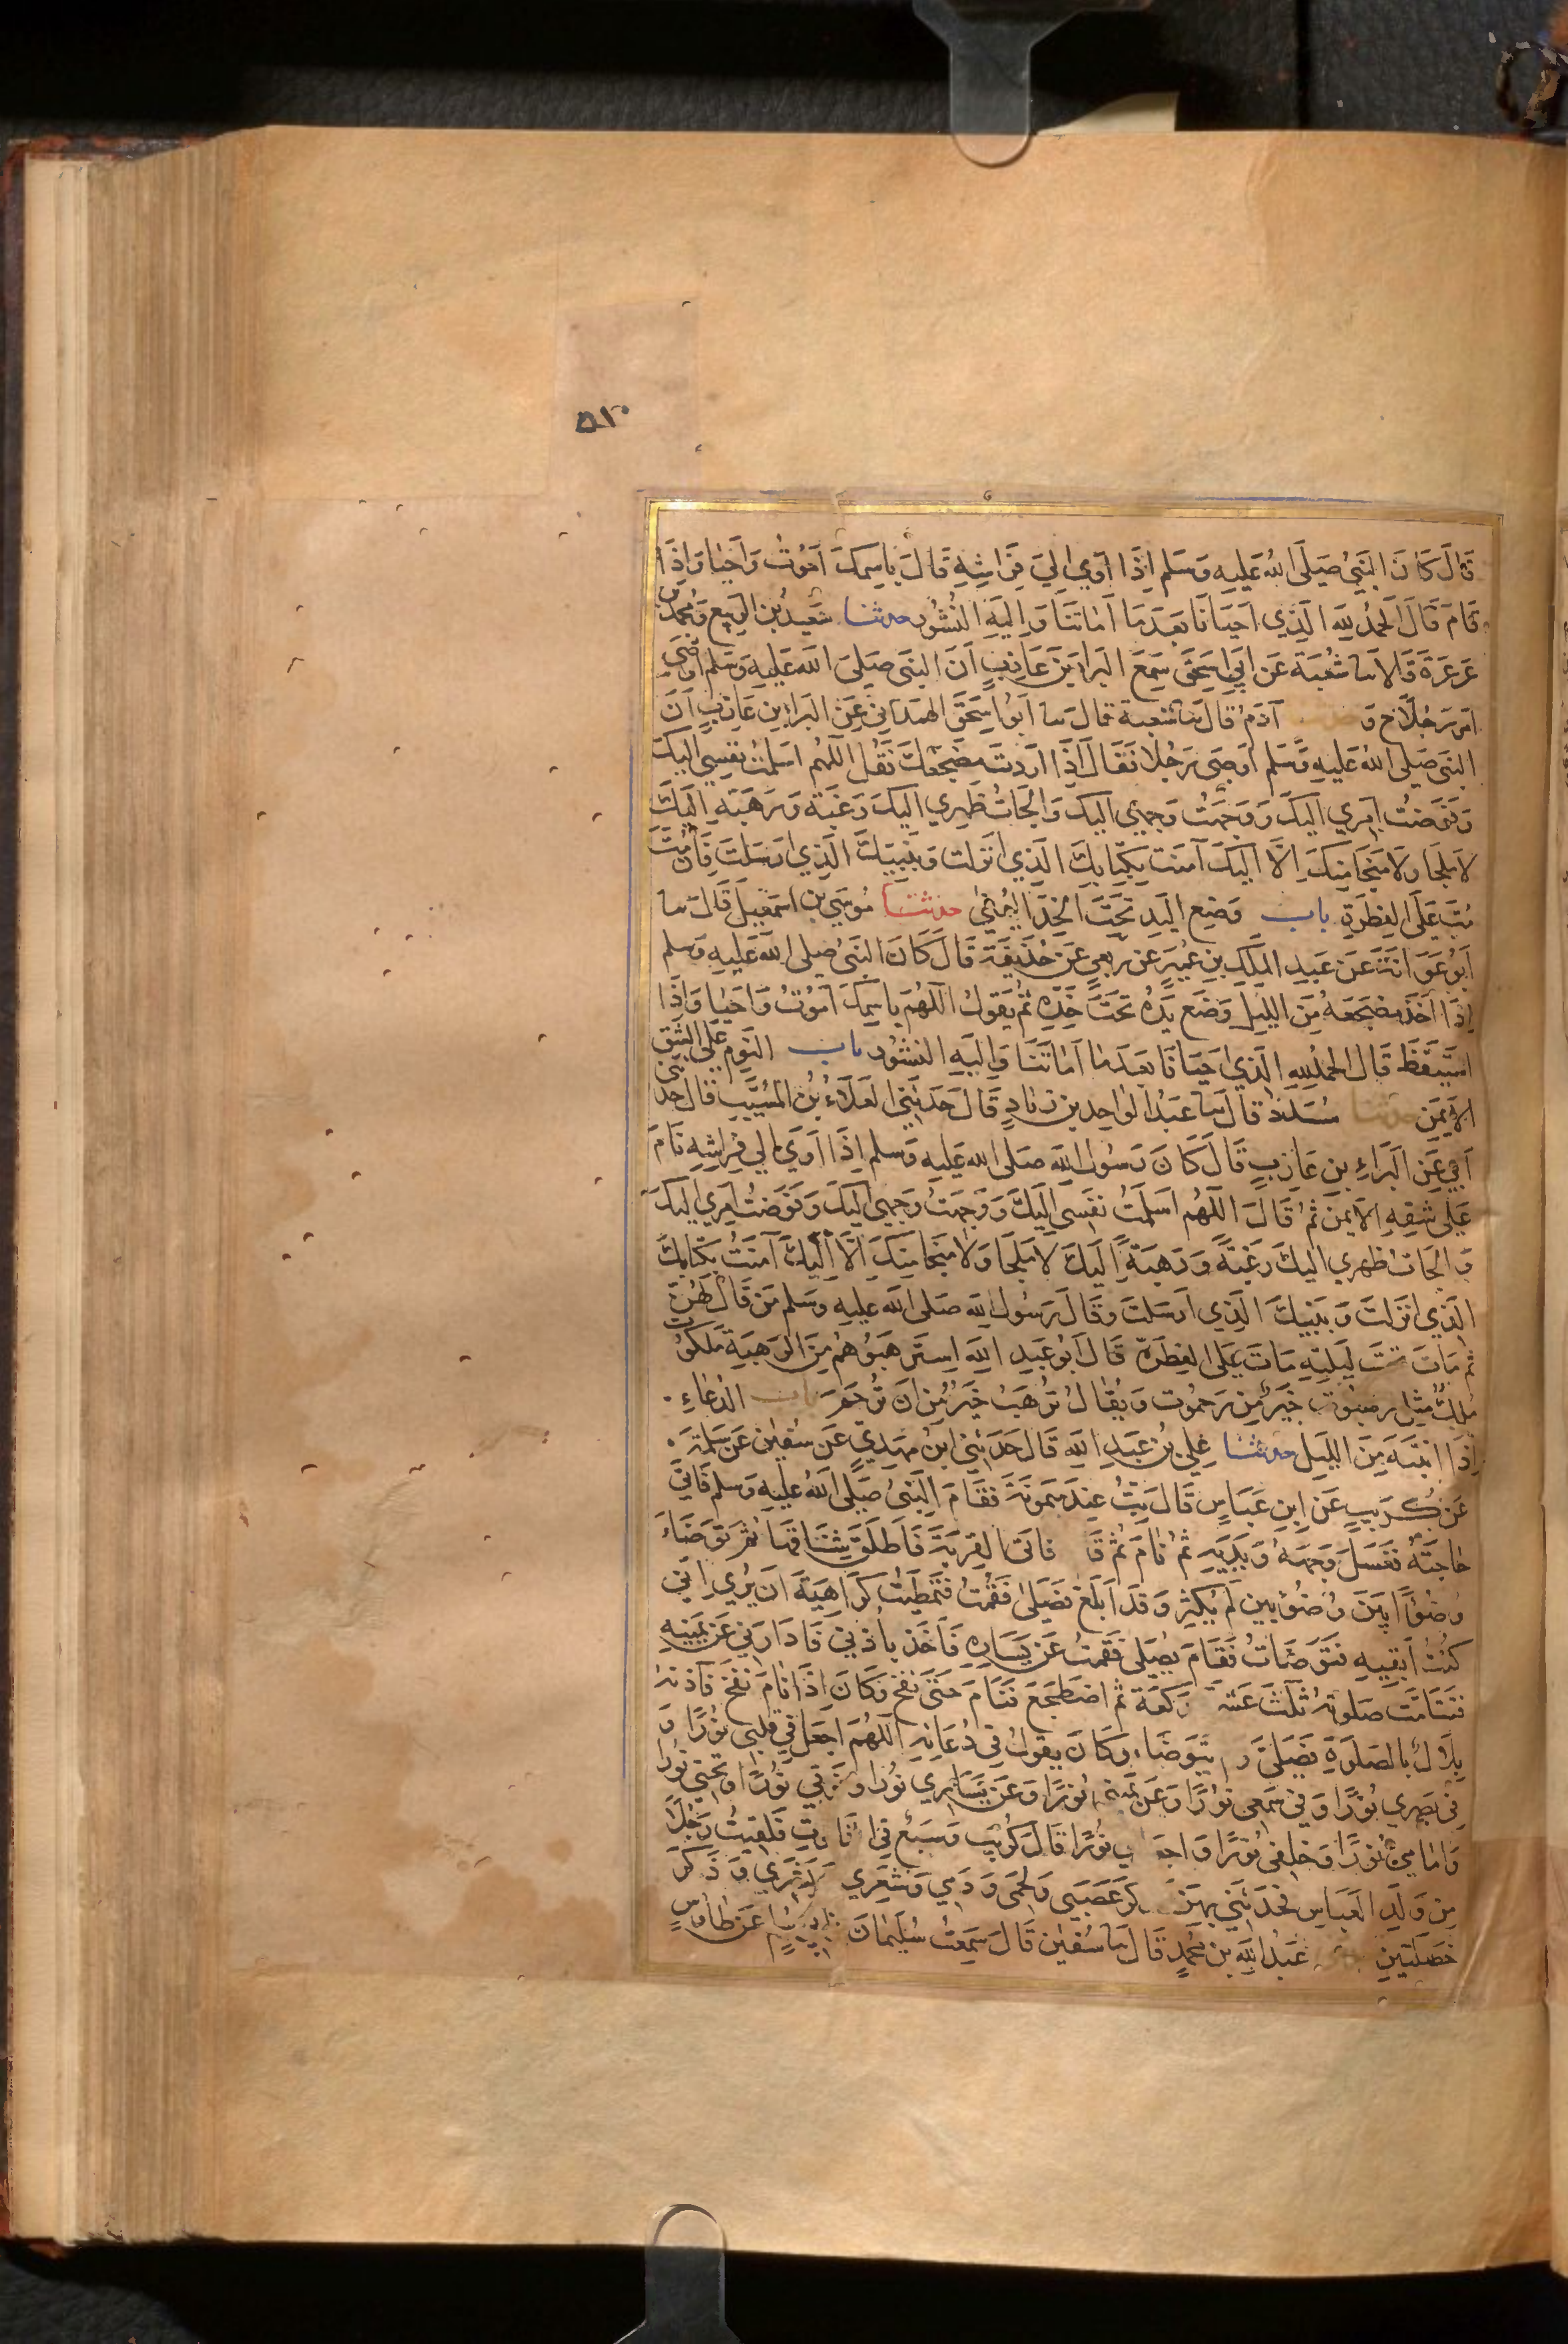 ٥١٠
قَالَ كَانَ النَّبِيُّ صَلَّى اللهُ عَلَيهِ وَسَلم اِذَا آوي اِلىَ فِرَاشِهِ قَالَ بِاسِمكَ اَمُوتُ وَاَحيٰا وَاِذَا
قَامَ قَالَ الحمدُ لِلهِ الَّذِي اَحيَانَا بَعدَ مَا اَمَاتَنَا وَاِليَهِ النُشُور حدثنا سَعيدُ بن الربيع وَمُحمدُ بن
عَرعَرَةَ قَالاَ سا شُعبَة عَن اَبِي اِسحٰقَ سَمِعَ البَراءَ بنَ عَازِبٍ اَنَّ النبَى صَلىَ اللهَ عَليهِ وَسَلم اَوصَى
اَمَرَ رَجُلًا ح وَ آدَمُ قَالَ سا شعبة قال سا اَبُو اِسحٰقَ الهَمدَانِي عَن البَراءِ بن عَازبٍ اَنَّ
النبَى صَلى اللهُ عَليهِ وَسَلم اَوصَى رَجُلا فقَالَ اِذَا اَردتَ مضجَعَكَ فَقُل اَللهُم اَسلمتُ نفسِي اِليكَ
وَفَوضتُ اَمِري اليكَ وَوَجهتُ وَجهِي اليك وَالجَاتُ ظهِري اليكَ رَغبَة وَرَهبَة اِليكَ
لاَ ملجَا وَلاَ منجَا مِنكَ اِلَّا اليكَ آمنتُ بكِتَابِكَ الَّذِي انزلت وَبنَبِيكَ الَّذِي ارسَلتَ فَاِن مُتَّ
مُتَّ عَلَى الفِطرَةِ باب وَضعِ اليَدِ تحَتَ الخدِّ اليُمنىٰ حدثنا مُوسَى بن اسمٰعِيلَ قَالَ سا
اَبُو عَوَانَة عَن عَبدِ المَلِكِ بنِ عُمَيرٍ عَن رَبعيٍ عَن حُذَيفَة قَالَ كَانَ النبَىُ صَلى اللهُ عَليهِ وَسلم
اِذَا اَخذَ مَضجَعَهُ مِنَ الليلِ وَضَع يدَهُ تحتَ خَدِّهِ ثُم يَقولُ اللهُمَ بِاسِمكَ اَمُوتُ وَاَحيٰا وَاِذَا
استَيقَظَ قَالَ الحمدُ لِلهِ الَّذِي اَحيَانَا بَعدَ مَا اَمَاتَنَا وَاِليَهِ النشُور باب النَومِ عَلَى الشِقِ
الاَيمَنِ حدثنا مُسَدَّدٌ قالَ سا عَبدُ الوَاحِدِ بن زيَادٍ قَالَ حَدثَنِي العَلَاءُ بُن المُسَيَّبِ قالَ حدثني
اَبي عَن البَراءِ بن عَازِبٍ قَالَ كَانَ رَسُولُ اللهِ صَلى الله عَليهِ وَسلم اِذَا اَوَىٰ اِلي فِراشِهِ نَامَ
عَلي شقِهِ الاَيمَنِ ثمُ قَالَ اللهُم اَسلَمتُ نفسِى اِليكَ وَوَجَهتُ وَجهِى اِليكَ وَفَوَضتُ اَمِري اِليكَ
وَالجَاتُ ظهري اليكَ رَغبَةً وَرَهبَةً اِليَكَ لاَ ملجَا وَلاَ منجَا مِنكَ الَّا اِليكَ آمَنتُ بكتَابِكَ
الَّذِي انزَلتَ وَبنَبِيكَ الَّذِي ارسَلتَ وقَالَ رَسُولُ اللهِ صَلى الله عليهِ وسَلم مَن قَالَهُنَّ
ثم مَاتَ تحتَ لَيلتِهِ مَاتَ عَلَى الفِطرَةِ قَالَ اَبُو عَبدِ اللهِ اِستَرهَبوُهُم مِنَ الرَهبَة مَلَكُوتٌ
مُلكٌ مثلُ رَهبوُت خَيرٌ مِن رَحمُوت وَيُقالُ تُرهَبُ خَيرٌ مِن اَن تُرحَمَ باب الدُعَاءِ
اِذَا انتبَهَ مِنَ الليَلِ حدثنا عَلِي بُن عَبدِ اللهِ قَالَ حَدَّثنِي ابنُ مهدِي عَن سُفيٰنَ عَن سَلمَة
عَن كُرَيبٍ عَن اِبنِ عَبَاسٍ قَالَ بِتُّ عِندَ ميمونَةَ فقَامَ النَّبىُ صَلَّى اللهُ عليهِ وَسلم فَاَتى
حَاجتَهُ فغَسَلَ وَجهَهُ وَيَديهِ ثم نَامَ ثمُ قَا فاتى القِربَةَ فَاطلَقَ شِنَاقهَا ثُم تَوَضَّاءَ
وُضُوًا بَينَ وُضُوئَين لَم يُكثِر وَقَد اَبلَغَ فصَلىٰ فَقُمتُ فَتَمَطيتُ كَرَاهِيَةَ اَن يَرٰي اَنِّي
كُنتُ اَبقِيهِ فتَوَضَّاتُ فَقَامَ يصُلِى فَقمتُ عَن يَسَارِهِ فَاَخَذَ بِاُذنِي فَادَارنِي عَن يَمينِهِ
فتَتامَّت صَلوتُهُ ثلٰثَ عَشَرَ رَكعَة ثم اضطَجَعَ فنَامَ حتىٰ نفَخَ وَكَانَ اِذَا نَامَ نَفَخَ فَآذنَهُ
بِلَالٌ بالصَلوٰةِ فَصَلىَّ وَ يتَوَضَّاء وكَانَ يقوُلُ فِي دُعَائِهِ اَللهُمَ اجعَل فِي قلبِي نُورًا وَ
فِي بَصرِي نُورًا وَفي سَمعِى نُورًا وَعَن يمِينِي نُورًا وَعَن يَسَارِي نُورًا وَفَوقِي نُورًا وَتحتِي نُورًا
وَامَامِي نُورًا وَخَلفِي نُورًا وَاجعَل لِي نُورًا قَالَ كُرَيب وَسَبعٌ فِي التَابُوتِ فَلَقيِتُ رَجُلًا
مِن وَلَدِ العَبَاسِ فحَدثَنِي بهِنَّ كَرَ عَصَبِي وَلحمِى وَدَمِي وَشعَرِي وَبَشَرِي وَذَكَرَ
خَصلَتَينِ عَبدُ اللهِ بن مُحمدٍ قَالَ سا سُفيٰنَ قَالَ سَمعِتُ سُليَمٰانَ بن اَبِي مُسلِم عَن طَاوُسٍ